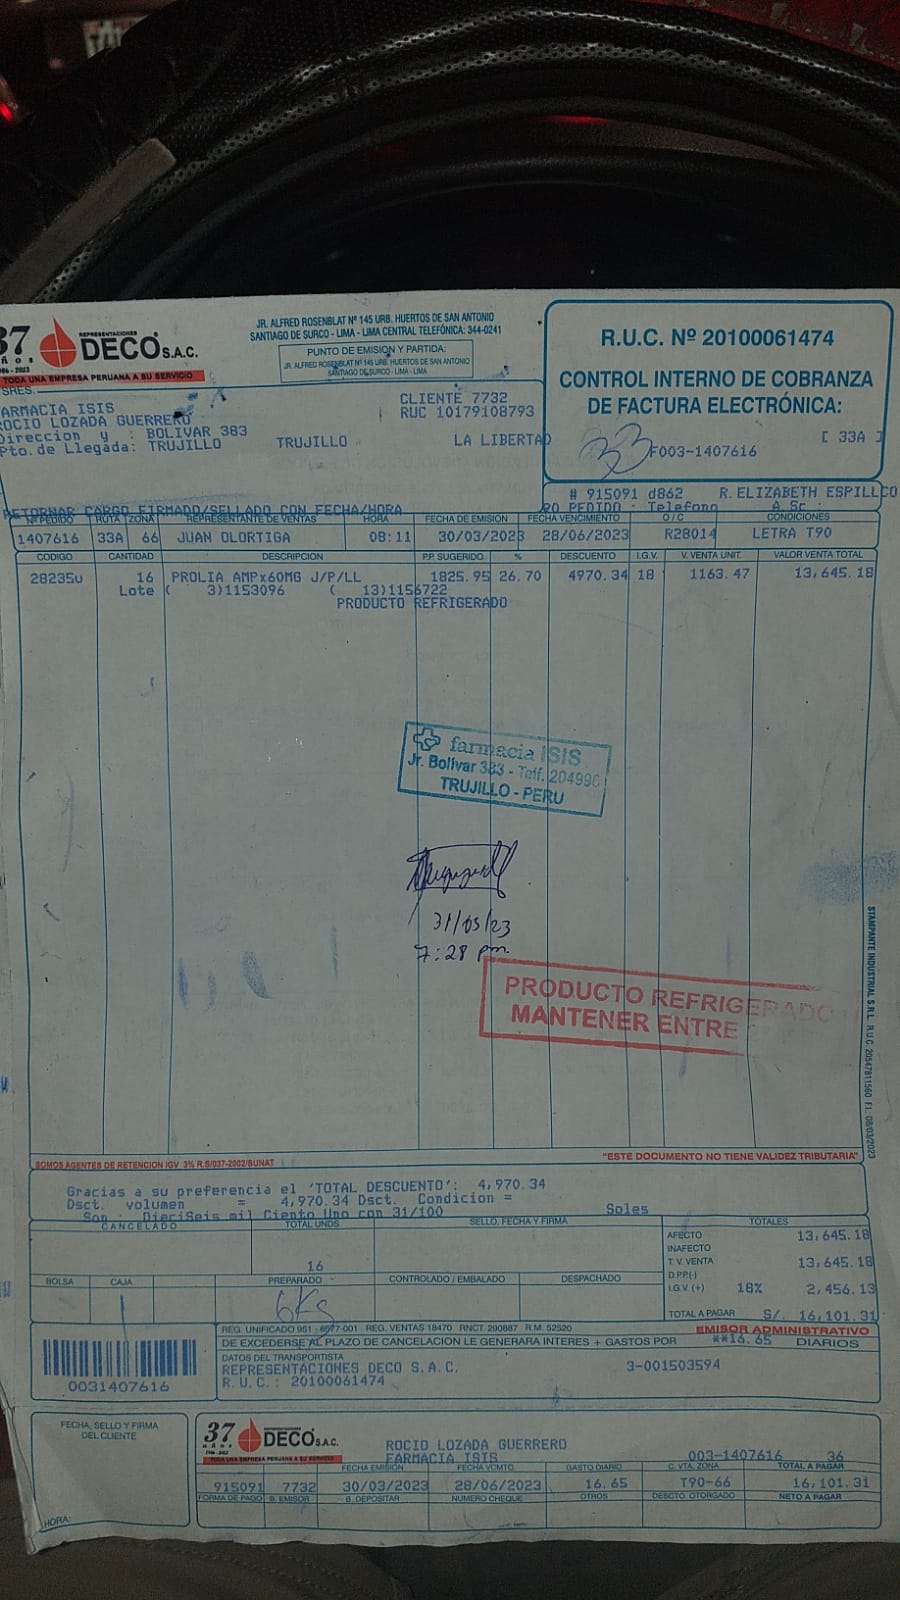 37 años REPRESENTACIONES DECO S.A.C.
1986 - 2023
TODA UNA EMPRESA PERUANA A SU SERVICIO
JR. ALFRED ROSENBLAT Nº 145 URB. HUERTOS DE SAN ANTONIO
SANTIAGO DE SURCO - LIMA - LIMA CENTRAL TELEFÓNICA: 344-0241
PUNTO DE EMISION Y PARTIDA:
JR. ALFRED ROSENBLAT Nº 145 URB. HUERTOS DE SAN ANTONIO
SANTIAGO DE SURCO - LIMA - LIMA
R.U.C. Nº 20100061474
CONTROL INTERNO DE COBRANZA
DE FACTURA ELECTRÓNICA:
[ 33A ]
33 F003-1407616
SRES.
FARMACIA ISIS
ROCIO LOZADA GUERRERO
Direccion y : BOLIVAR 383
Pto.de Llegada: TRUJILLO TRUJILLO LA LIBERTAD
CLIENTE 7732
RUC 10179108793
# 915091 d862 R.ELIZABETH ESPILLCO
RETORNAR CARGO FIRMADO/SELLADO CON FECHA/HORA
RO PEDIDO : Telefono A.Sr :
Nº PEDIDO RUTA ZONA REPRESENTANTE DE VENTAS HORA FECHA DE EMISION FECHA VENCIMIENTO O/C CONDICIONES
1407616 33A 66 JUAN OLORTIGA 08:11 30/03/2023 28/06/2023 R28014 LETRA T90
CODIGO CANTIDAD DESCRIPCION P.P. SUGERIDO % DESCUENTO I.G.V. V. VENTA UNIT. VALOR VENTA TOTAL
28235u 16 PROLIA AMPx60MG J/P/LL 1825.95 26.70 4970.34 18 1163.47 13,645.18
Lote ( 3)1153096 ( 13)1156722
PRODUCTO REFRIGERADO
farmacia ISIS
Jr. Bolívar 383 - Telf. 204996
TRUJILLO - PERU
31/03/23
7:28 pm
PRODUCTO REFRIGERADO
MANTENER ENTRE
STAMPANTE INDUSTRIAL S.R.L. R.U.C. 20547811560 F.I. 08/03/2023
SOMOS AGENTES DE RETENCION IGV 3% R.S/037-2002/SUNAT
"ESTE DOCUMENTO NO TIENE VALIDEZ TRIBUTARIA"
Gracias a su preferencia el 'TOTAL DESCUENTO': 4,970.34
Dsct. volumen = 4,970.34 Dsct. Condicion =
Son : DieciSeis mil Ciento Uno con 31/100 Soles
CANCELADO TOTAL UNDS. SELLO, FECHA Y FIRMA TOTALES
16
AFECTO 13,645.18
INAFECTO
T.V. VENTA 13,645.18
D.P.P.(-)
I.G.V. (+) 18% 2,456.13
TOTAL A PAGAR S/. 16,101.31
BOLSA CAJA PREPARADO CONTROLADO / EMBALADO DESPACHADO
1 6Kg
REG. UNIFICADO 951 - 6577-001 REG. VENTAS 18470 RNCT. 290887 R.M. 52520
EMISOR ADMINISTRATIVO
DE EXCEDERSE AL PLAZO DE CANCELACION LE GENERARA INTERES + GASTOS POR **16.65 DIARIOS
0031407616
DATOS DEL TRANSPORTISTA
REPRESENTACIONES DECO S.A.C. 3-001503594
R.U.C.: 20100061474
FECHA, SELLO Y FIRMA
DEL CLIENTE
HORA:
37 años REPRESENTACIONES DECO S.A.C.
1986 - 2023
TODA UNA EMPRESA PERUANA A SU SERVICIO
ROCIO LOZADA GUERRERO
FARMACIA ISIS 003-1407616 36
FECHA EMISIÓN FECHA VCMTO. GASTO DIARIO C. VTA. ZONA TOTAL A PAGAR
915091 7732 30/03/2023 28/06/2023 16.65 T90-66 16,101.31
FORMA DE PAGO B. EMISOR B. DEPOSITAR NUMERO CHEQUE OTROS DESCTO. OTORGADO NETO A PAGAR